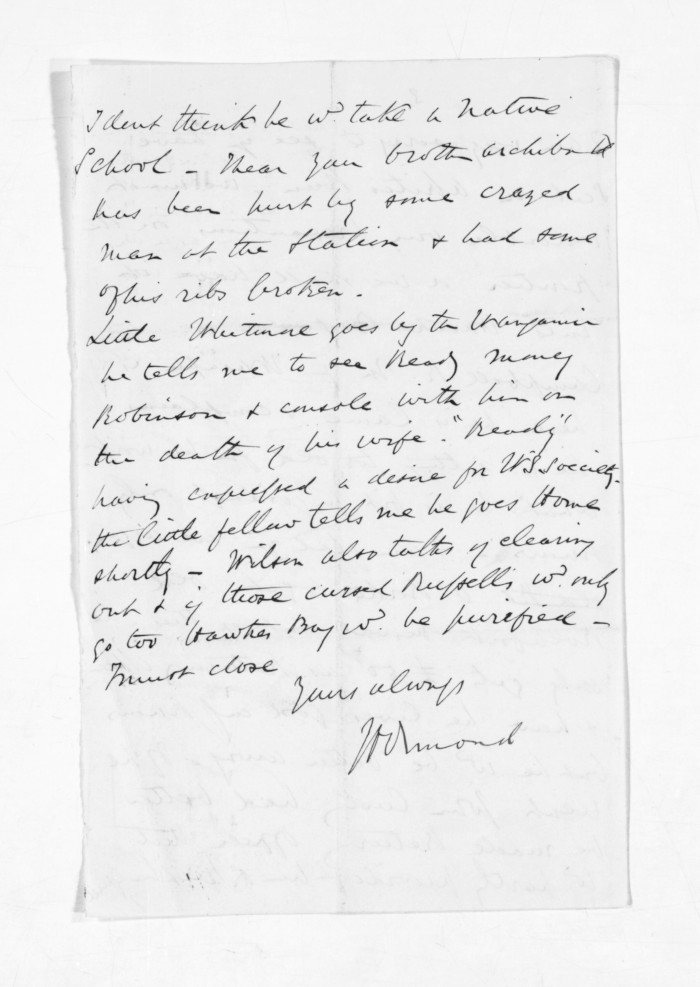 I dont think he wd. take a Native
School - I hear your brother Archibald
has been hurt by some crazed
man at the Station & had some
of his ribs broken.
Little Whitmore goes by the Wanganui
he tells me to see Ready money
Robinson & console with him on
the death of his wife. "Ready"
having expressed a desire for W's Society.
the little fellow tells me he goes Home
shortly - Wilson also talks of clearing
out & if those cursed Russells wd. only
go too Hawkes Bay wd. be purified -
I must close
Yours always
JD Ormond